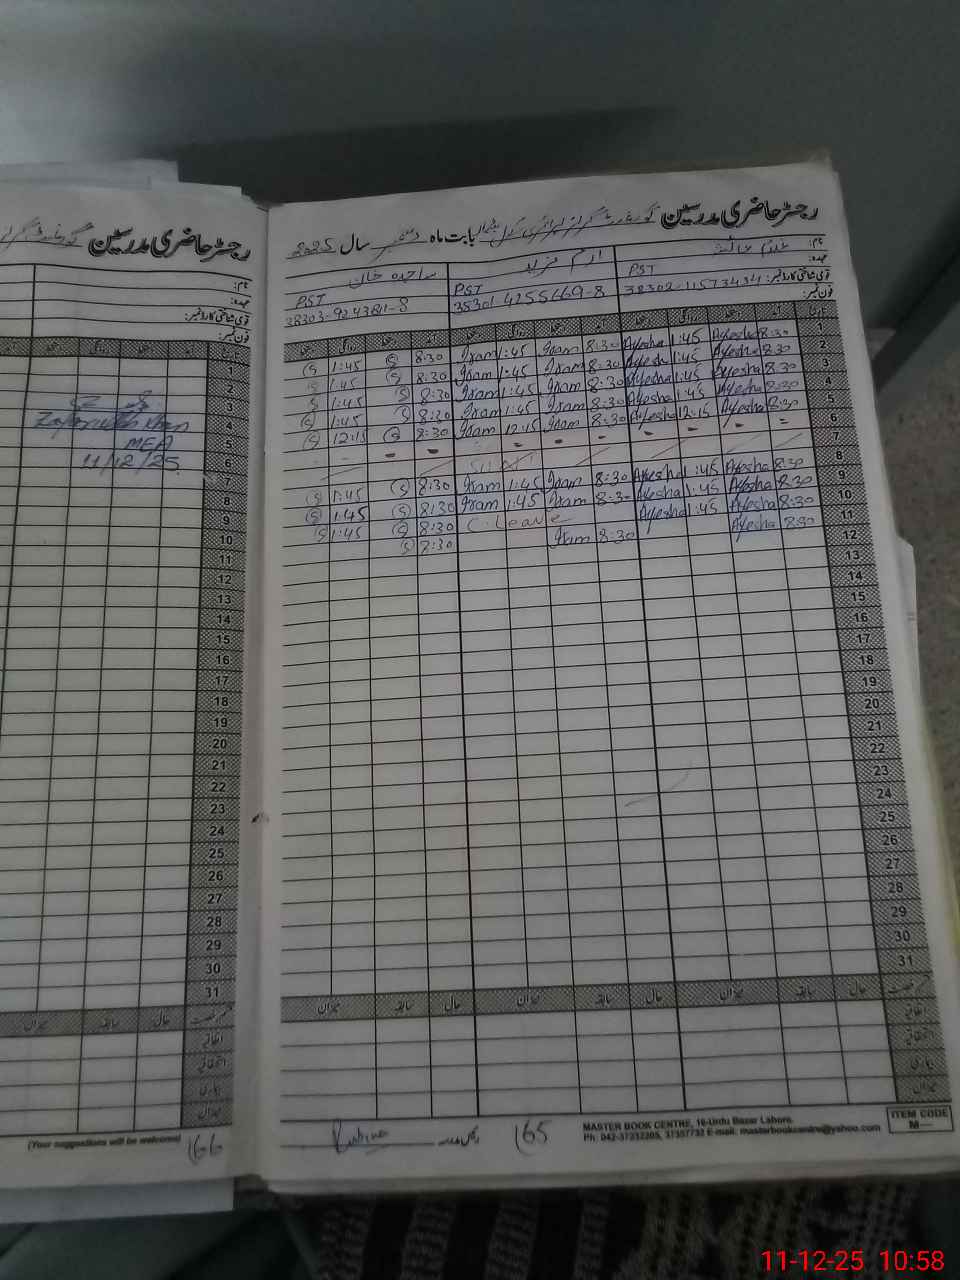 رجسٹر حاضری مدرسین
بابت ماہ دسمبر سال 2025
نام:
عہدہ: PST
قومی شناختی کارڈ نمبر: 38302-1157343-4
فون نمبر:
ارم
PST
35301-4255669-8
ساجدہ خان
PST
38303-9243811-8
1 8:30 Ayesha 1:45 Ayesha 8:30 Iram 1:45 Iram 8:30 1:45
2 8:30 Ayesha 1:45 Ayesha 8:30 Iram 1:45 Iram 8:30 1:45
3 8:30 Ayesha 1:45 Ayesha 8:30 Iram 1:45 Iram 8:30 1:45
4 8:30 Ayesha 1:45 Ayesha 8:30 Iram 1:45 Iram 8:30 1:45
5 8:30 Ayesha 12:15 Ayesha 8:30 Iram 12:15 Iram 8:30 12:15
6
7
8 8:30 Ayesha 1:45 Ayesha 8:30 Iram 1:45 Iram 8:30 1:45
9 8:30 Ayesha 1:45 Ayesha 8:30 Iram 1:45 Iram 8:30 1:45
10 8:30 Ayesha 1:45 Ayesha C.Leave 8:30 1:45
11 8:30 Ayesha 8:30 Iram
12
13
14
15
16
17
18
19
20
21
22
23
24
25
26
27
28
29
30
31
حال سابقہ میزان حال سابقہ میزان حال سابقہ میزان
اتفاقیہ
استحقاقیہ
بیماری
میزان
Rubina
165
MASTER BOOK CENTRE, 16-Urdu Bazar Lahore.
Ph: 042-37232205, 37357732 E-mail: masterbookcentre@yahoo.com
ITEM CODE
M—
رجسٹر حاضری مدرسین
نام:
عہدہ:
قومی شناختی کارڈ نمبر:
فون نمبر:
1
2
3
4
5
6
7
8
9
10
11
12
13
14
15
16
17
18
19
20
21
22
23
24
25
26
27
28
29
30
31
MEA
11/12/25
حال سابقہ میزان
اتفاقیہ
استحقاقیہ
بیماری
میزان
(Your suggestions will be welcomed)
166
11-12-25 10:58